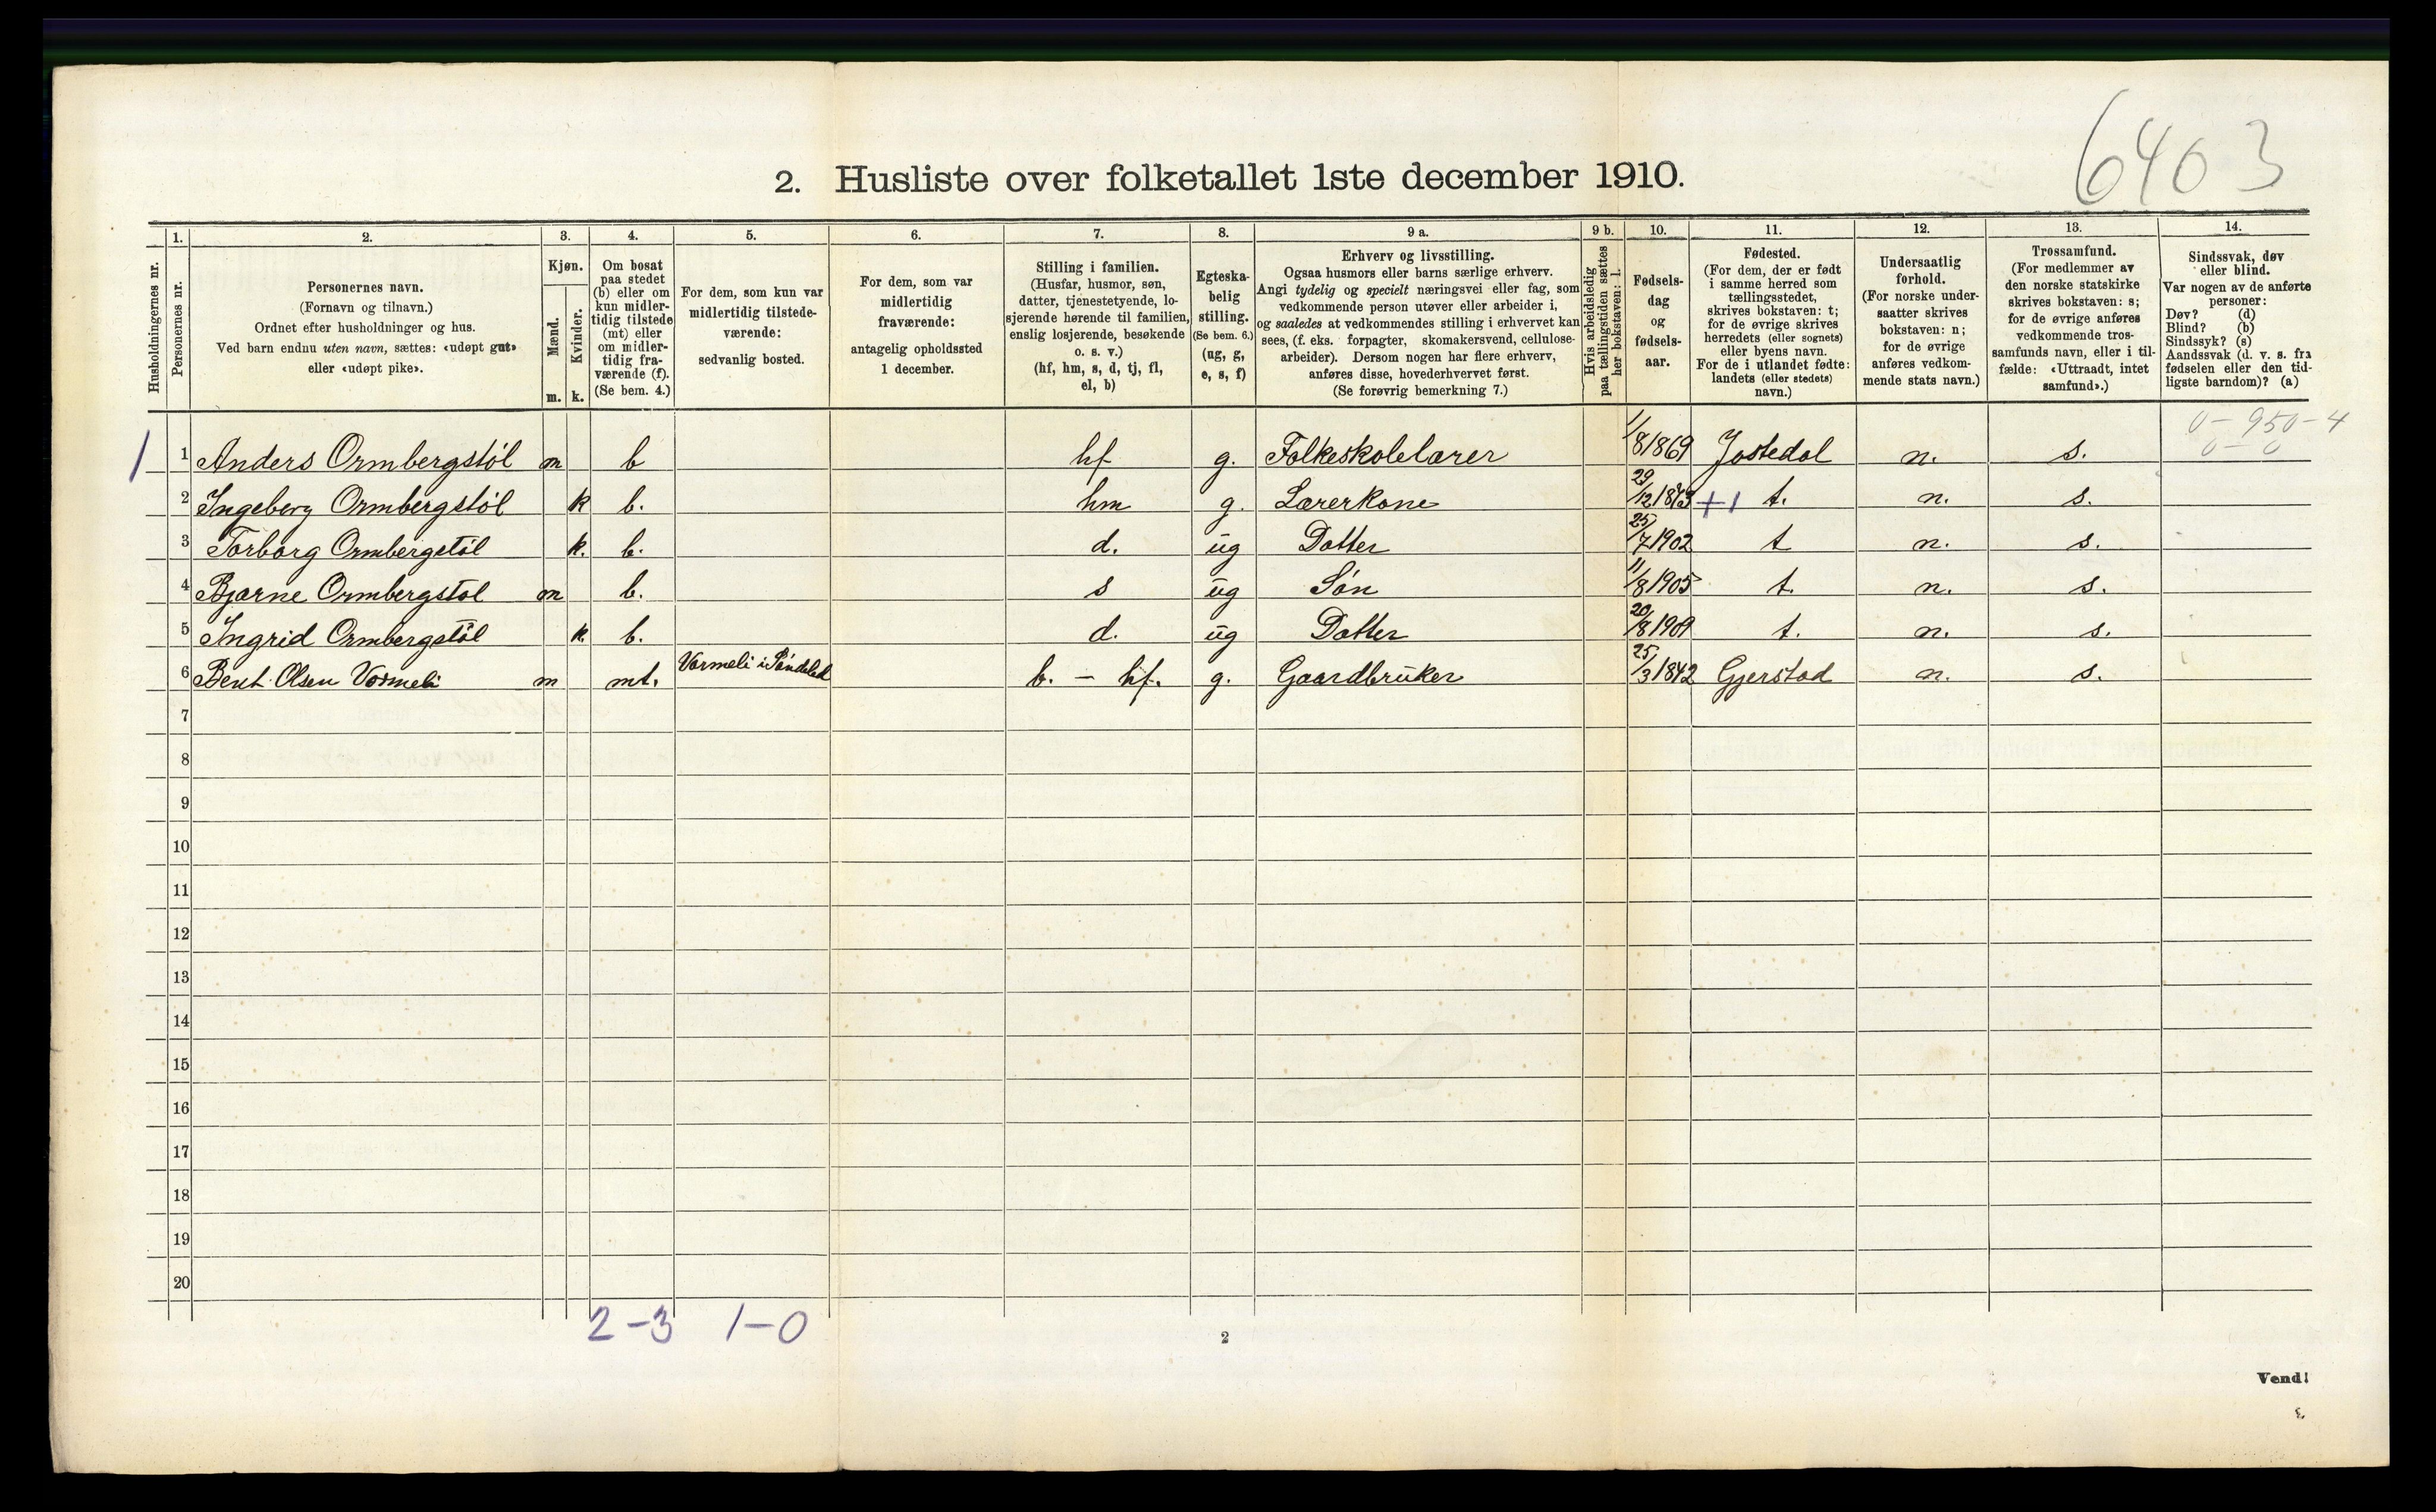 6403
2. Husliste over folketallet 1ste december 1910.
Husholdningernes nr.
1.
Personernes nr.
2.
Personernes navn.
(Fornavn og tilnavn.)
Ordnet efter husholdninger og hus.
Ved barn endnu uten navn, sættes: «udøpt gut»
eller «udøpt pike».
3.
Kjøn.
Mænd.
Kvinder.
m. k.
4.
Om bosat
paa stedet
(b) eller om
kun midler-
tidig tilstede
(mt) eller
om midler-
tidig fra-
værende (f).
(Se bem. 4.)
5.
For dem, som kun var
midlertidig tilstede-
værende:
sedvanlig bosted.
6.
For dem, som var
midlertidig
fraværende:
antagelig opholdssted
1 december.
7.
Stilling i familien.
(Husfar, husmor, søn,
datter, tjenestetyende, lo-
sjerende hørende til familien,
enslig losjerende, besøkende
o. s. v.)
(hf, hm, s, d, tj, fl,
el, b)
8.
Egteska-
belig
stilling.
(Se bem. 6.)
(ug, g,
e, s, f)
9 a.
Erhverv og livsstilling.
Ogsaa husmors eller barns særlige erhverv.
Angi tydelig og specielt næringsvei eller fag, som
vedkommende person utøver eller arbeider i,
og saaledes at vedkommendes stilling i erhvervet kan
sees, (f. eks. forpagter, skomakersvend, cellulose-
arbeider). Dersom nogen har flere erhverv,
anføres disse, hovederhvervet først.
(Se forøvrig bemerkning 7.)
9 b.
Hvis arbeidsledig
paa tællingstiden sættes
her bokstaven: l.
10.
Fødsels-
dag
og
fødsels-
aar.
11.
Fødested.
(For dem, der er født
i samme herred som
tællingsstedet,
skrives bokstaven: t;
for de øvrige skrives
herredets (eller sognets)
eller byens navn.
For de i utlandet fødte:
landets (eller stedets)
navn.)
12.
Undersaatlig
forhold.
(For norske under-
saatter skrives
bokstaven: n;
for de øvrige
anføres vedkom-
mende stats navn.)
13.
Trossamfund.
(For medlemmer av
den norske statskirke
skrives bokstaven: s;
for de øvrige anføres
vedkommende tros-
samfunds navn, eller i til-
fælde: «Uttraadt, intet
samfund».)
14.
Sindssvak, døv
eller blind.
Var nogen av de anførte
personer:
Døv? (d)
Blind? (b)
Sindssyk? (s)
Aandssvak (d. v. s. fra
fødselen eller den tid-
ligste barndom)? (a)
0 – 950 – 4
0 – 0
1 1 Anders Ormbergstöl m b hf g. Folkeskolelærer 1/8 1869 Jostedal n. s.
2 Ingeberg Ormbergstöl k b. hm g. Lærerkone 29/12 1873 +1 t. n. s.
3 Torborg Ormbergstöl k. b. d. ug Datter 25/7 1902 t n. s.
4 Bjarne Ormbergstøl m b. s ug Sön 11/8 1905 t. n. s.
5 Ingrid Ormbergstöl k. b. d. ug Datter 20/8 1909 t. n. s.
6 Bent Olsen Vormeli m mt. Vormeli i Söndeled b. – hf. g. Gaardbruker 25/3 1842 Gjerstad n. s.
7
8
9
10
11
12
13
14
15
16
17
18
19
20
2 – 3 1 – 0
2
Vend!